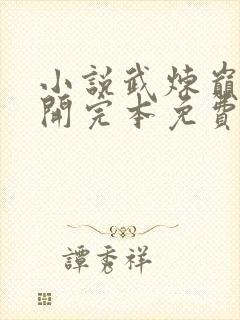 小說武煉巔
開完本免費
譚秀祥